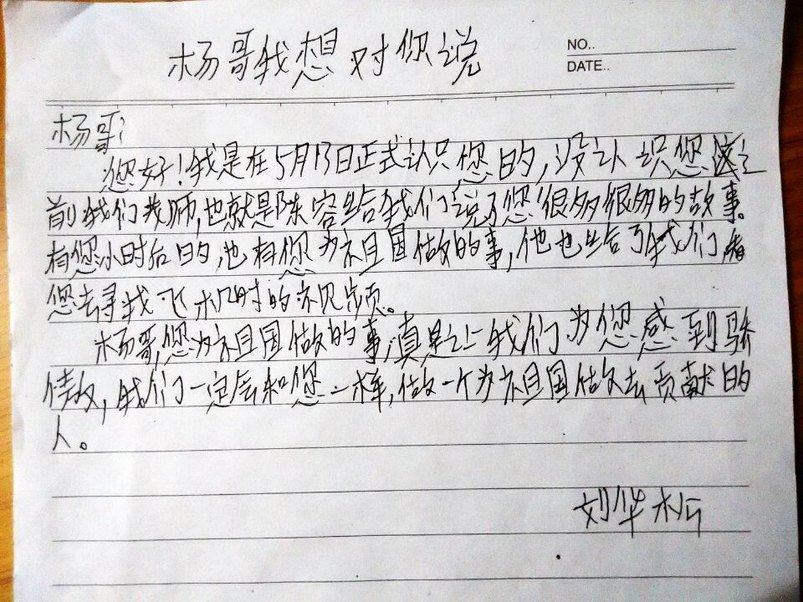 杨哥我想对你说
NO..
DATE..
杨哥:
您好!我是在5月13日正式认识您的,没认识您之
前我们老师,也就是陈容给我们说了您很多很多的故事。
有您小时后的,也有您为祖国做的事,他也给了我们看
您去寻找飞机时的视频。
杨哥,您为祖国做的事,真是让我们为您感到骄
傲,我们一定会和您一样,做一个为祖国做出贡献的
人。
刘华